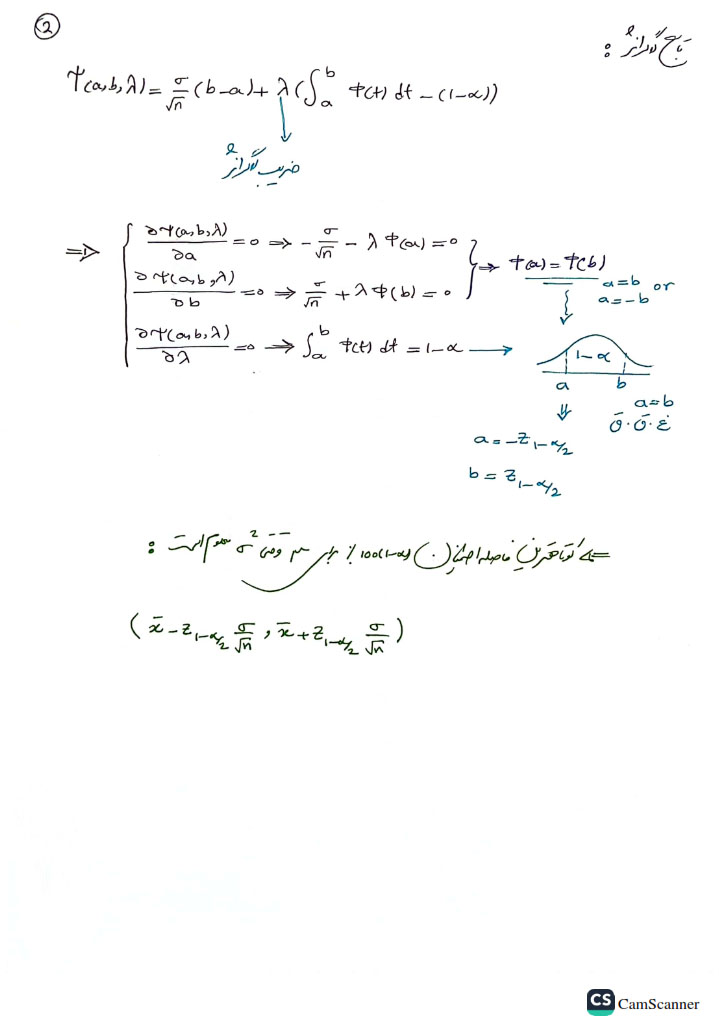 ②
تابع لاگرانژ :
Ψ(a,b,λ) = σ/√n (b-a) + λ(∫_a^b φ(t) dt - (1-α))
ضریب لاگرانژ
⇒ { ∂Ψ(a,b,λ)/∂a = 0 ⇒ -σ/√n - λ φ(a) = 0
∂Ψ(a,b,λ)/∂b = 0 ⇒ σ/√n + λ φ(b) = 0 } ⇒ φ(a) = φ(b)
a=b or
a=-b
∂Ψ(a,b,λ)/∂λ = 0 ⇒ ∫_a^b φ(t) dt = 1-α →
1-α
a b
a=b
غ.ق.ق
a = -Z_{1-α/2}
b = Z_{1-α/2}
⇒ کوتاهترین فاصله اطمینان 100(1-α)% برای μ وقتی σ² معلوم است :
(x̄ - Z_{1-α/2} σ/√n , x̄ + Z_{1-α/2} σ/√n)
CS CamScanner